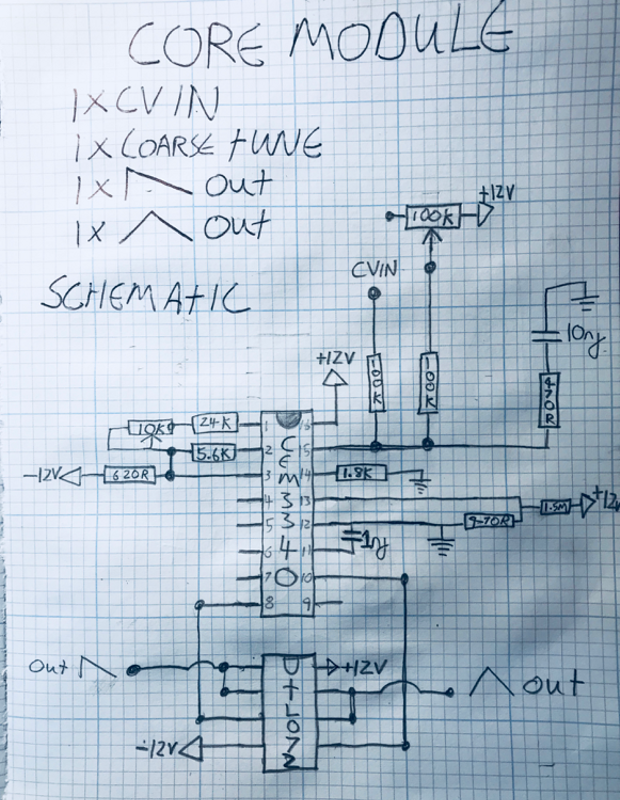 CORE MODULE
1X CV IN
1X COARSE TUNE
1X OUT
1X OUT
SCHEMATIC
+12V
100K
CVIN
10nf
+12V
100K
100K
470R
10K
24K
1
16
5.6K
2
15
-12V
620R
3
14
1.8K
CEM3340
4
13
1.5M
+12V
5
12
470R
6
11
1nf
7
10
8
9
Out
+12V
TL072
Out
-12V